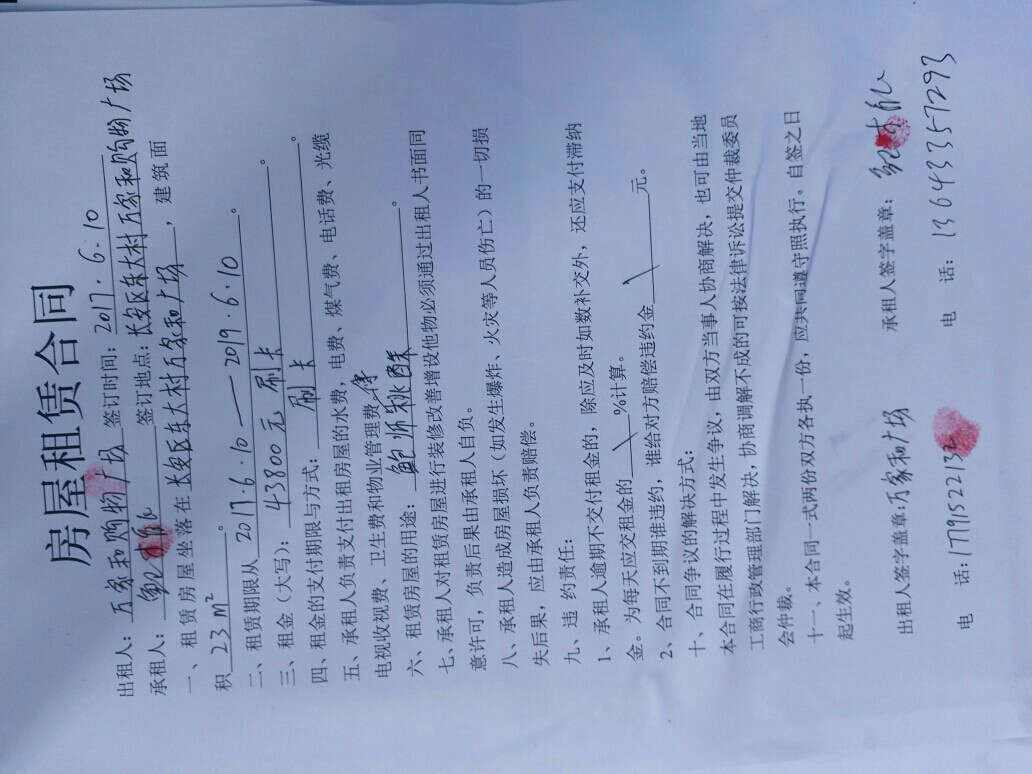 房屋租赁合同
出租人：万家和购物广场 签订时间：2017.6.10
承租人： 签订地点：长安区东大村万家和购物广场
一、租赁房屋坐落在长安区东大村万家和广场，建筑面
积 23 m²。
二、租赁期限从 2017.6.10 — 2019.6.10。
三、租金（大写）：43800元 刷卡。
四、租金的支付期限与方式：刷卡。
五、承租人负责支付出租房屋的水费，电费、煤气费、电话费、光缆
电视收视费、卫生费和物业管理费。
六、租赁房屋的用途：鲍师桃酥。
七、承租人对租赁房屋进行装修改善增设他物必须通过出租人书面同
意许可，负责后果由承租人自负。
八、承租人造成房屋损坏（如发生爆炸、火灾等人员伤亡）的一切损
失后果，应由承租人负责赔偿。
九、违 约责任：
1、承租人逾期不交付租金的，除应及时如数补交外，还应支付滞纳
金。为每天应交租金的 \ %计算。
2、合同不到期谁违约，谁给对方赔偿违约金 \ 元。
十、合同争议的解决方式：
本合同在履行过程中发生争议，由双方当事人协商解决，也可由当地
工商行政管理部门解决，协商调解不成的可按法律诉讼提交仲裁委员
会仲裁。
十一、本合同一式两份双方各执一份，应共同遵守照执行。自签之日
起生效。
出租人签字盖章：万家和广场 承租人签字盖章：
电 话： 电 话：13643357293